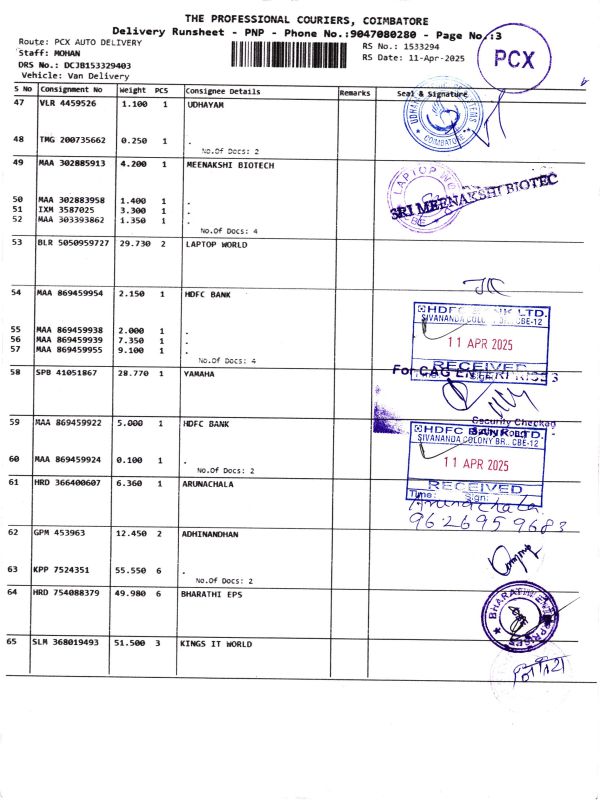 THE PROFESSIONAL COURIERS, COIMBATORE
Delivery Runsheet - PNP - Phone No.:9047080280 - Page No.:3
Route: PCX AUTO DELIVERY
Staff: MOHAN
DRS No.: DCJB153329403
Vehicle: Van Delivery
RS No.: 1533294
RS Date: 11-Apr-2025
PCX
S No Consignment No Weight PCS Consignee Details Remarks Seal & Signature
47 VLR 4459526 1.100 1 UDHAYAM
COIMBATORE
48 TMG 200735662 0.250 1 .
No.Of Docs: 2
49 MAA 302885913 4.200 1 MEENAKSHI BIOTECH
LAPTOP
SRI MEENAKSHI BIOTEC
50 MAA 302883958 1.400 1 .
51 IXM 3587025 3.300 1 .
52 MAA 303393862 1.350 1 .
No.Of Docs: 4
53 BLR 5050959727 29.730 2 LAPTOP WORLD
54 MAA 869459954 2.150 1 HDFC BANK
HDFC BANK LTD.
SIVANANDA COLONY BR., CBE-12
11 APR 2025
RECEIVED
55 MAA 869459938 2.000 1 .
56 MAA 869459939 7.350 1 .
57 MAA 869459955 9.100 1 .
No.Of Docs: 4
For CAG ENTERPRISES
58 SPB 41051867 28.770 1 YAMAHA
Security Checked
59 MAA 869459922 5.000 1 HDFC BANK
HDFC BANK LTD.
SIVANANDA COLONY BR., CBE-12
11 APR 2025
RECEIVED
Time: Sign:
60 MAA 869459924 0.100 1 .
No.Of Docs: 2
61 HRD 366400607 6.360 1 ARUNACHALA
Arunachala
9626959683
62 GPM 453963 12.450 2 ADHINANDHAN
63 KPP 7524351 55.550 6 .
No.Of Docs: 2
64 HRD 754088379 49.980 6 BHARATHI EPS
BHARATHI ENTERPRISES
65 SLM 368019493 51.500 3 KINGS IT WORLD